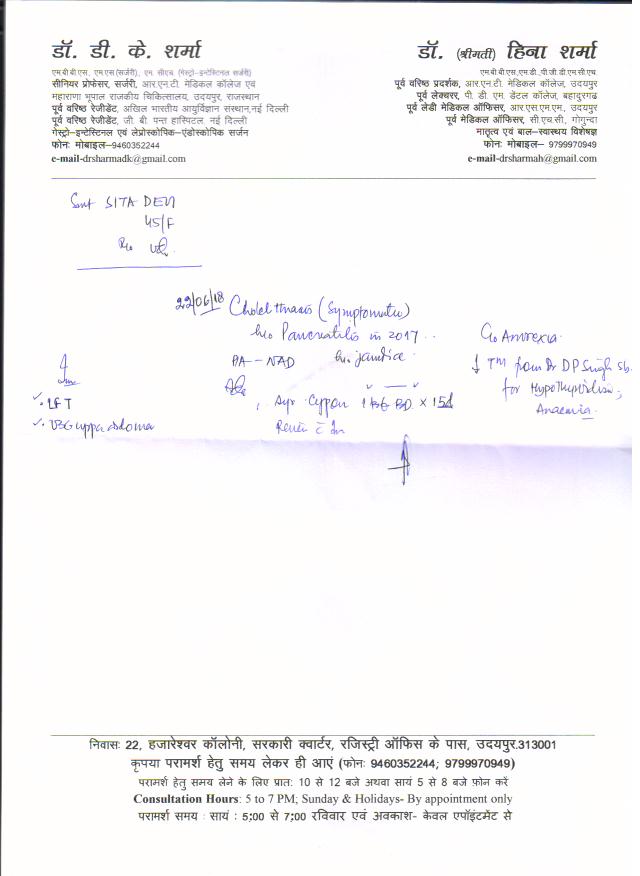 डॉ. डी. के. शर्मा
एम.बी.बी.एस, एम.एस.(सर्जरी), एम. सीएच. (गेस्ट्रो-इन्टेस्टिनल सर्जरी)
सीनियर प्रोफेसर, सर्जरी, आर.एन.टी. मेडिकल कॉलेज एवं
महाराणा भूपाल राजकीय चिकित्सालय, उदयपुर, राजस्थान
पूर्व वरिष्ठ रेजीडेंट, अखिल भारतीय आयुर्विज्ञान संस्थान,नई दिल्ली
पूर्व वरिष्ठ रेजीडेंट, जी. बी. पन्त हास्पिटल, नई दिल्ली
गेस्ट्रो-इन्टेस्टिनल एवं लेप्रोस्कोपिक-एंडोस्कोपिक सर्जन
फोनः मोबाइल-9460352244
e-mail-drsharmadk@gmail.com
डॉ. (श्रीमती) हिना शर्मा
एम.बी.बी.एस,एम.डी.,पी.जी.डी.एम.सी.एच.
पूर्व वरिष्ठ प्रदर्शक, आर.एन.टी. मेडिकल कॉलेज, उदयपुर
पूर्व लेक्चरर, पी. डी. एम. डेंटल कॉलेज, बहादुरगढ
पूर्व लेडी मेडिकल ऑफिसर, आर.एस.एम.एम., उदयपुर
पूर्व मेडिकल ऑफिसर, सी.एच.सी., गोगुन्दा
मातृत्व एवं बाल-स्वास्थ्य विशेषज्ञ
फोनः मोबाइल- 9799970949
e-mail-drsharmah@gmail.com
Smt SITA DEVI
45/F
R/o
22/06/18 Cholelithiasis (Symptomatic)
h/o Pancreatitis in 2017 ..
PA - NAD h/o jaundice.
Adv
Syr Cypon BD x 15d
Review c
C/o Anorexia.
Tm from Dr DP Singh Sb.
for Hypothyroidism,
Anaemia.
Inv
LFT
USG upper abdomen
निवासः 22, हजारेश्वर कॉलोनी, सरकारी क्वार्टर, रजिस्ट्री ऑफिस के पास, उदयपुर.313001
कृपया परामर्श हेतु समय लेकर ही आएं (फोनः 9460352244; 9799970949)
परामर्श हेतु समय लेने के लिए प्रातः 10 से 12 बजे अथवा सायं 5 से 8 बजे फ़ोन करें
Consultation Hours: 5 to 7 PM; Sunday & Holidays- By appointment only
परामर्श समय : सायं : 5:00 से 7:00 रविवार एवं अवकाश- केवल एपॉइंटमेंट से